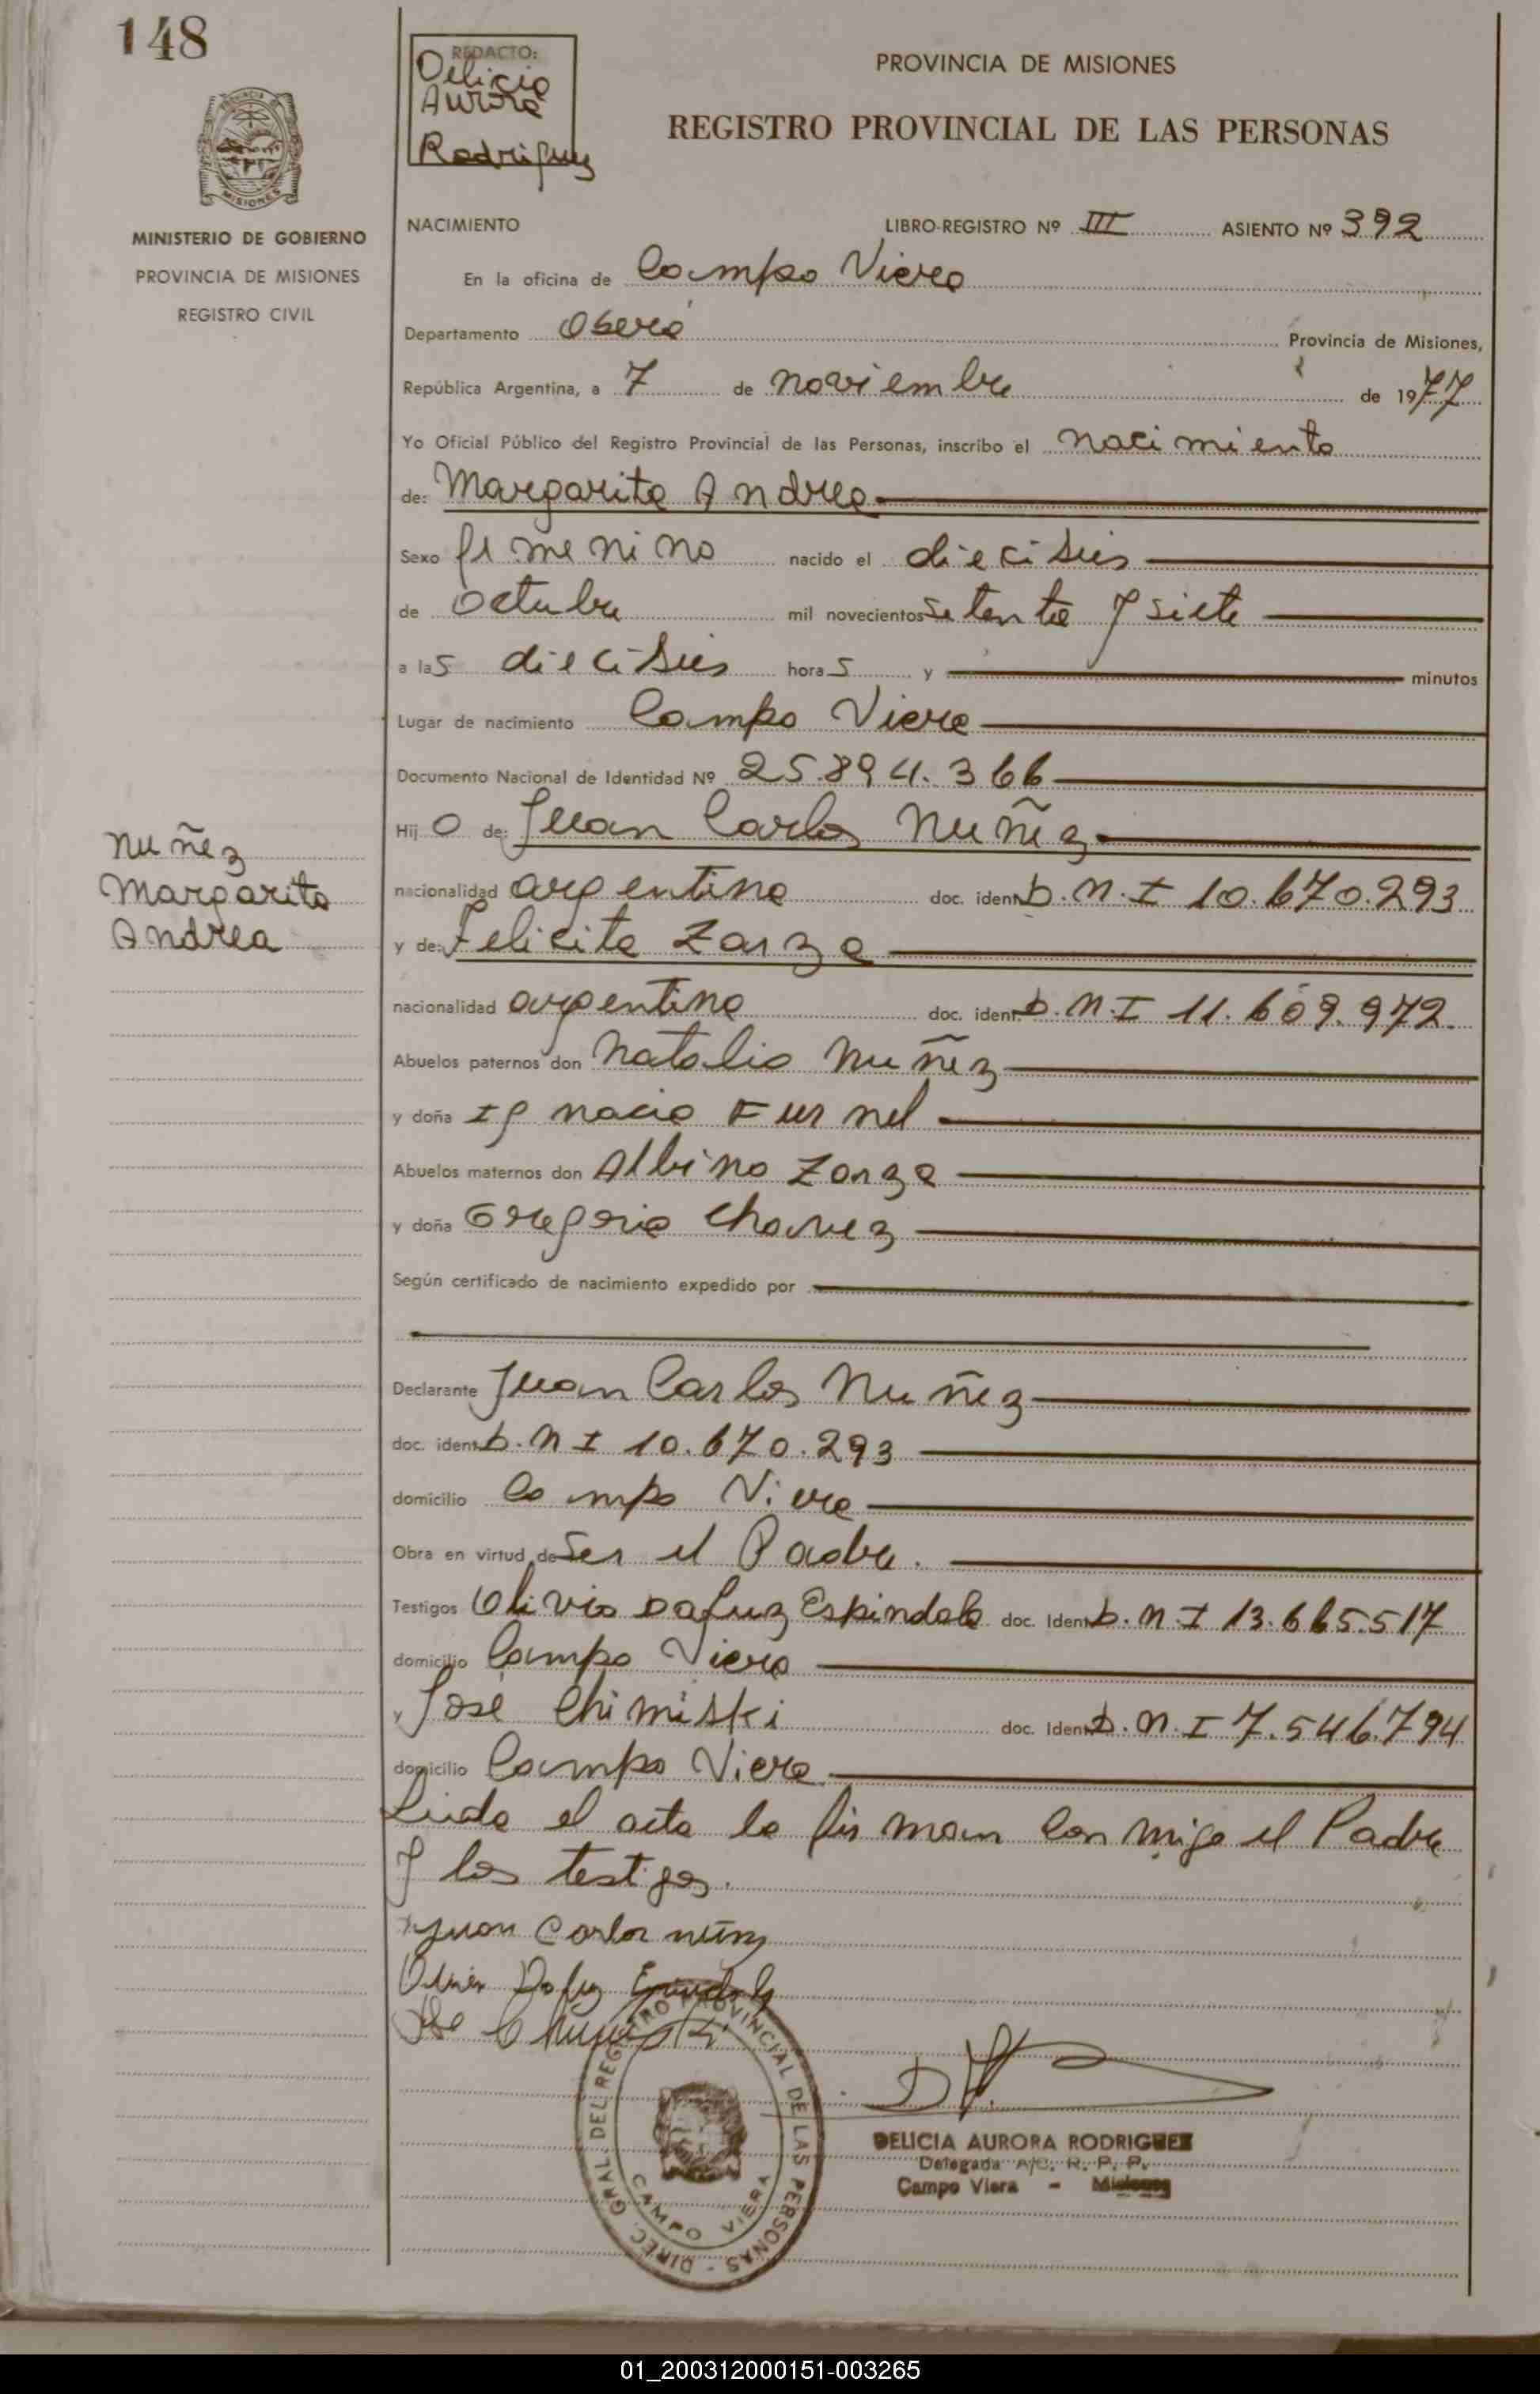 148
REDACTO:
Delicia
Aurora
Rodriguez
PROVINCIA DE MISIONES
REGISTRO PROVINCIAL DE LAS PERSONAS
PROVINCIA DE MISIONES
MINISTERIO DE GOBIERNO
PROVINCIA DE MISIONES
REGISTRO CIVIL
NACIMIENTO LIBRO-REGISTRO Nº III ASIENTO Nº 392
En la oficina de Campo Viera
Departamento Oberá Provincia de Misiones,
República Argentina, a 7 de noviembre de 1977
Yo Oficial Público del Registro Provincial de las Personas, inscribo el nacimiento
de: Margarita Andrea
Sexo femenino nacido el dieciseis
de octubre mil novecientos setenta y siete
a las dieciseis horas y minutos
Lugar de nacimiento Campo Viera
Documento Nacional de Identidad Nº 25.894.366
Hijo de: Juan Carlos Nuñez
Nuñez
Margarita
Andrea
nacionalidad argentina doc. ident. D.N.I 10.670.293
y de: Felicita Zarza
nacionalidad argentina doc. ident. D.N.I 11.609.972
Abuelos paternos don Natalio Nuñez
y doña Ignacia Furnel
Abuelos maternos don Albino Zarza
y doña Gregoria Chavez
Según certificado de nacimiento expedido por
Declarante Juan Carlos Nuñez
doc. ident. D.N.I 10.670.293
domicilio Campo Viera
Obra en virtud de Ser el Padre.
Testigos Olivio Dafuz Espindola doc. Ident. D.N.I 13.665.517
domicilio Campo Viera
y José Chimiski doc. Ident. D.N.I 7.546.794
domicilio Campo Viera
Leida el acta la firman conmigo el Padre
y los testigos.
Juan Carlos nuñez
Olivio Dafuz Espindola
José Chimiski
DIREC. GRAL. DEL REGISTRO PROVINCIAL DE LAS PERSONAS -
CAMPO VIERA
DELICIA AURORA RODRIGUEZ
Delegada A/C. R. P. P.
Campo Viera - Misiones
01_200312000151-003265